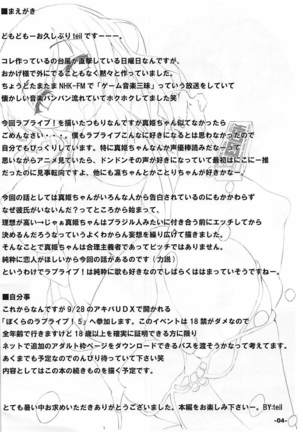 ■まえがき
どもどもーお久しぶりteilですーーー。
コレ作っているの台風が直撃している日曜日なんですが、
おかげ様で外にでることもなく黙々と作っていました。
ちょうどたまたまNHK-FMで「ゲーム音楽三昧」っていう放送をしていて
懐かしい音楽バンバン流れていてホクホクしてました笑
今回ラブライブ！を描いたつもりなんですが、真姫ちゃん似てなかったら
ごめんなさい・・・。僕もラブライブこんなに好きになるとは思わなかったので
自分でもびっくりしています。特に真姫ちゃんなんか声優棒読みだなーって
思いながらアニメ見ていたら、ドンドンその声が好きになっていて最初はにこに一推
だったのに見事転向ですよ、他にも凛ちゃんとかことりちゃんが好きかなー。
今回の話としては真姫ちゃんがいろんな人から告白されているのにもかかわらず
なぜ彼氏がいないんだ？ってところから始まって、
理想が高いーじゃぁ真姫ちゃんはブラジル人みたいに付き合う前にエッチしてから
決めるんだろうなっていうよくわからん妄想を繰り広げて描きました。
そんなことで真姫ちゃんは合理主義者であってビッチではありません。
純粋に恋人がほしいから今回の話があるのです（力説）
というわけでラブライブ！は純粋に歌も好きなのでしばらくははまっていそうですねー。
■自分事
これからなんですが9/28のアキバUDXで開かれる
「ぼくらのラブライブ！5」へ参加します。このイベントは18禁がダメなので
全年齢で行きますけど18歳以上を確実に証明できる方に限り
ネットで追加のアダルト枠ページをダウンロードできるパスを渡そうかなって考えてます。
あくまでも予定なのでのんびり待っていて下さい笑
内容としてはこの本の続きものを描く予定です。
とても暑い中お求めいただきありがとうございました。本編をお楽しみ下さいー。BY:teil
-04-